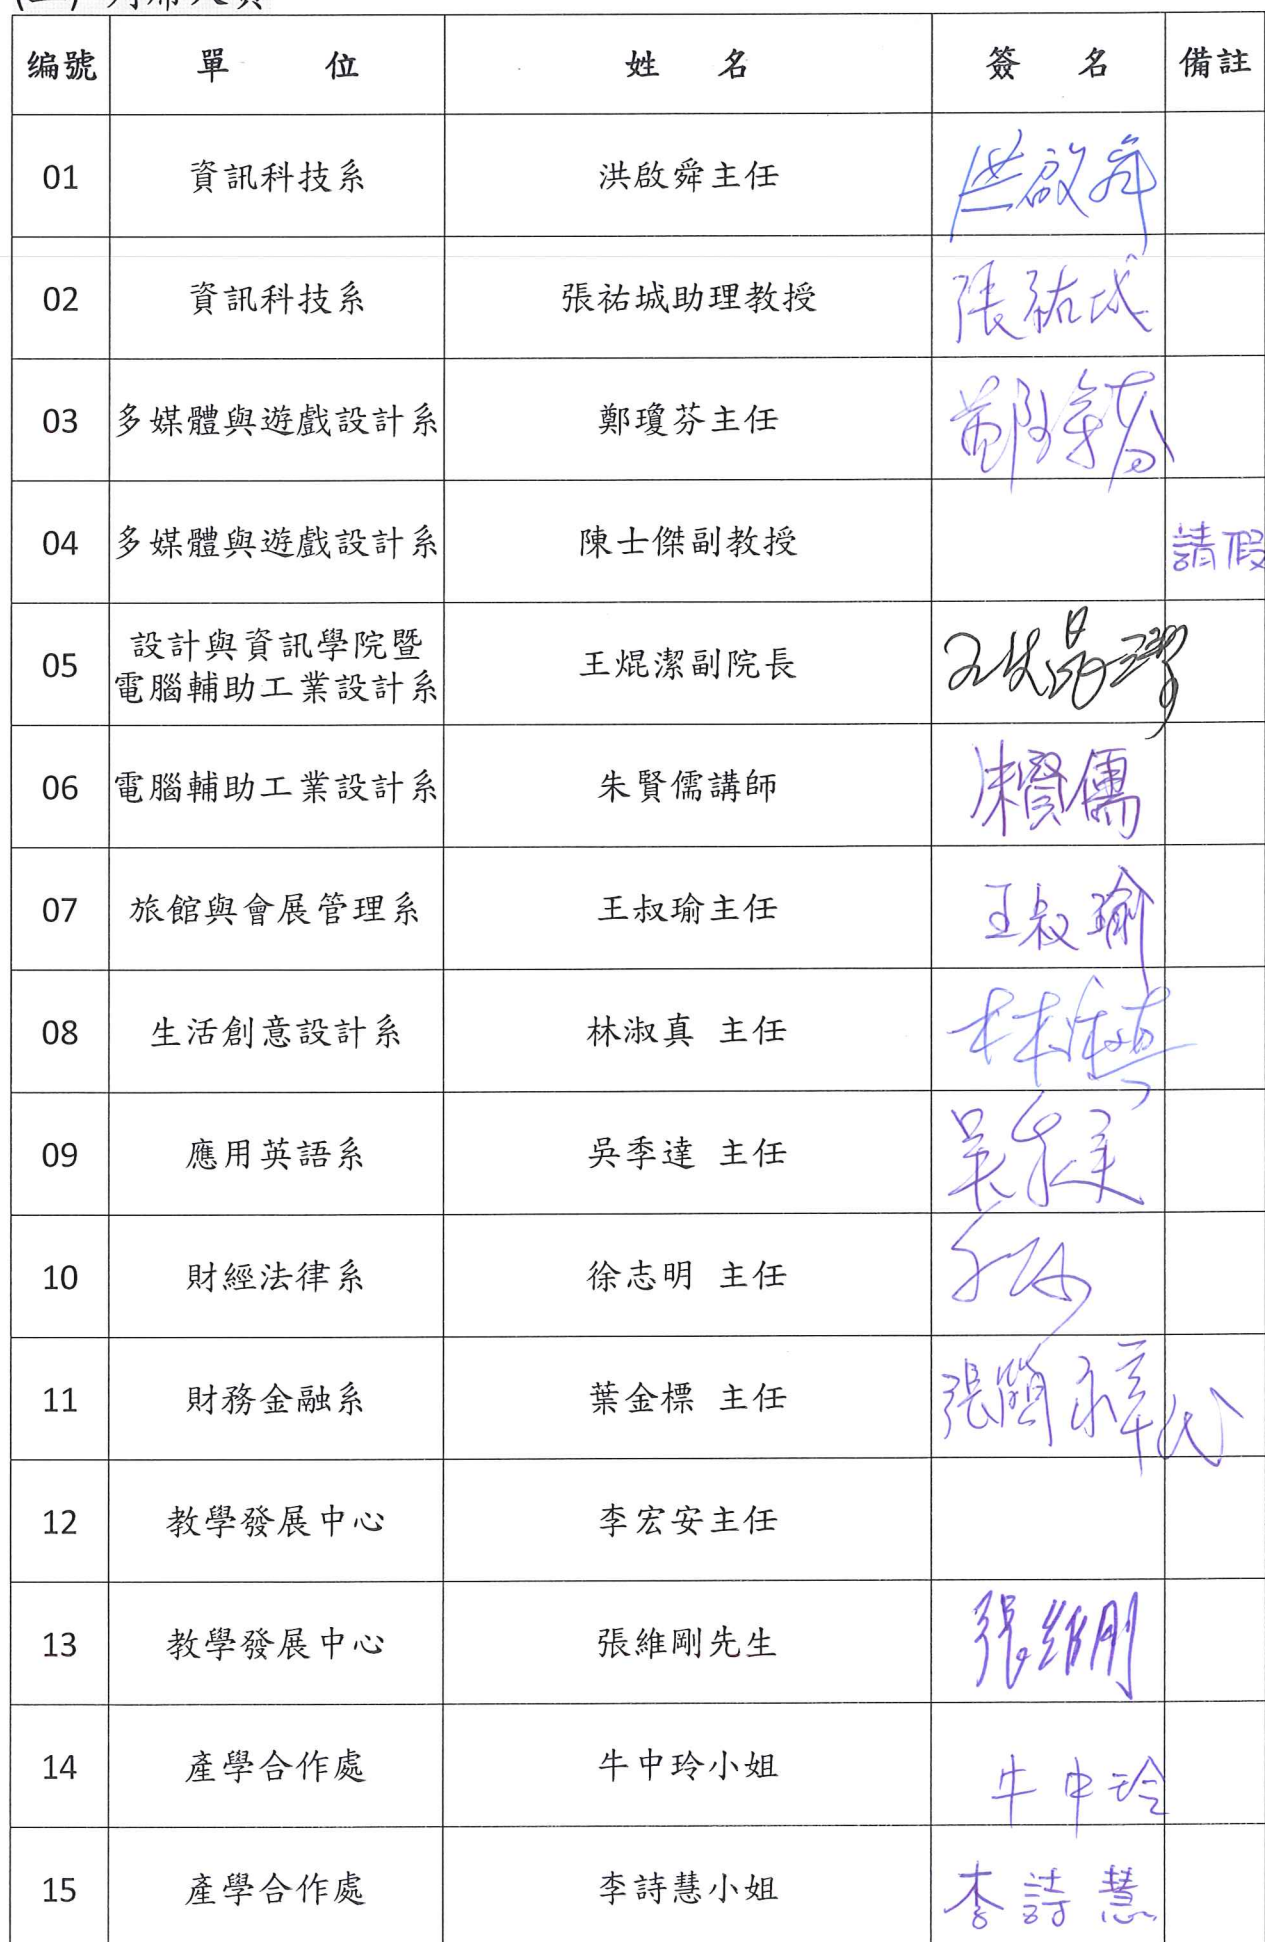 編號 單 位 姓 名 簽 名 備註
01 資訊科技系 洪啟舜主任 洪啟舜
02 資訊科技系 張祐城助理教授 張祐城
03 多媒體與遊戲設計系 鄭瓊芬主任
04 多媒體與遊戲設計系 陳士傑副教授 請假
設計與資訊學院暨
05 電腦輔助工業設計系 王焜潔副院長
06 電腦輔助工業設計系 朱賢儒講師 朱賢儒
07 旅館與會展管理系 王叔瑜主任 王叔瑜
08 生活創意設計系 林淑真 主任 林淑真
09 應用英語系 吳季達 主任
10 財經法律系 徐志明 主任
11 財務金融系 葉金標 主任 張簡永章代
12 教學發展中心 李宏安主任
13 教學發展中心 張維剛先生 張維剛
14 產學合作處 牛中玲小姐 牛中玲
15 產學合作處 李詩慧小姐 李詩慧